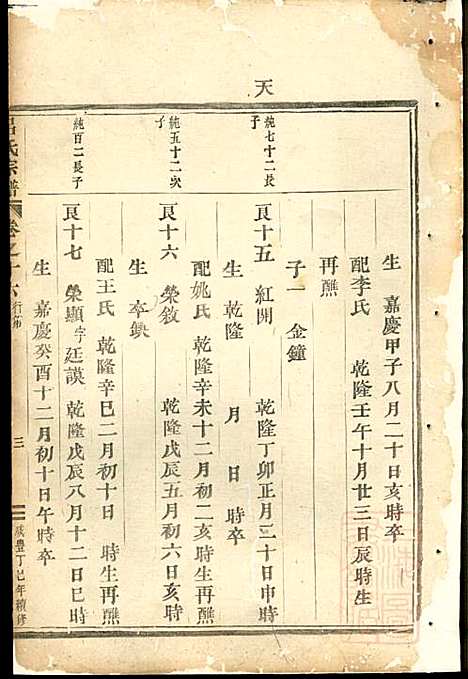 天
生 嘉慶甲子八月二十日亥時卒
配李氏 乾隆壬午十月廿三日辰時生
再醮
子一 金鐘
純七十二長子
艮十五 紅開 乾隆丁卯正月三十日申時
生 乾隆 月 日 時卒
配姚氏 乾隆辛未十二月初二亥時生再醮
純五十二次子
艮十六 榮敘 乾隆戊辰五月初六日亥時
生 卒缺
配王氏 乾隆辛巳二月初十日 時生再醮
純百二長子
艮十七 榮顯字廷謨 乾隆戊辰八月十二日巳時
生 嘉慶癸酉十二月初十日午時卒
呂氏宗譜 卷之十六 行第 三 咸豐丁巳年續修